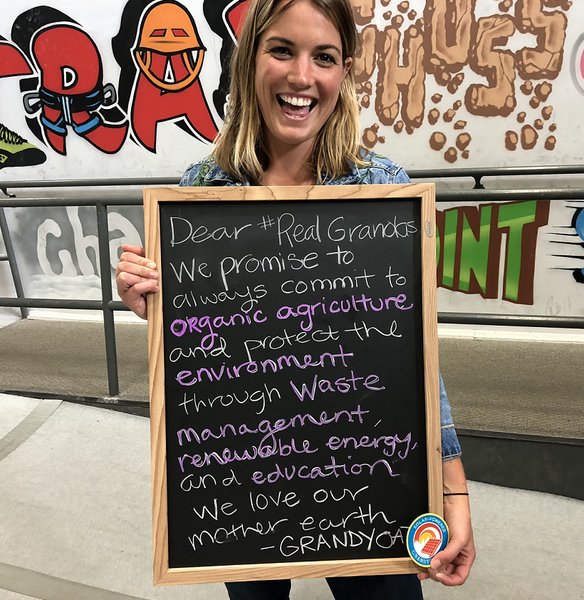 Dear #Real Grandas
We promise to
always commit to
organic agriculture
and protect the
environment
through Waste
management,
renewable energy,
and education
We love our
mother earth
-GRANDYOAT
SOLAR-POWERED